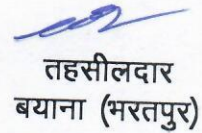 तहसीलदार
बयाना (भरतपुर)